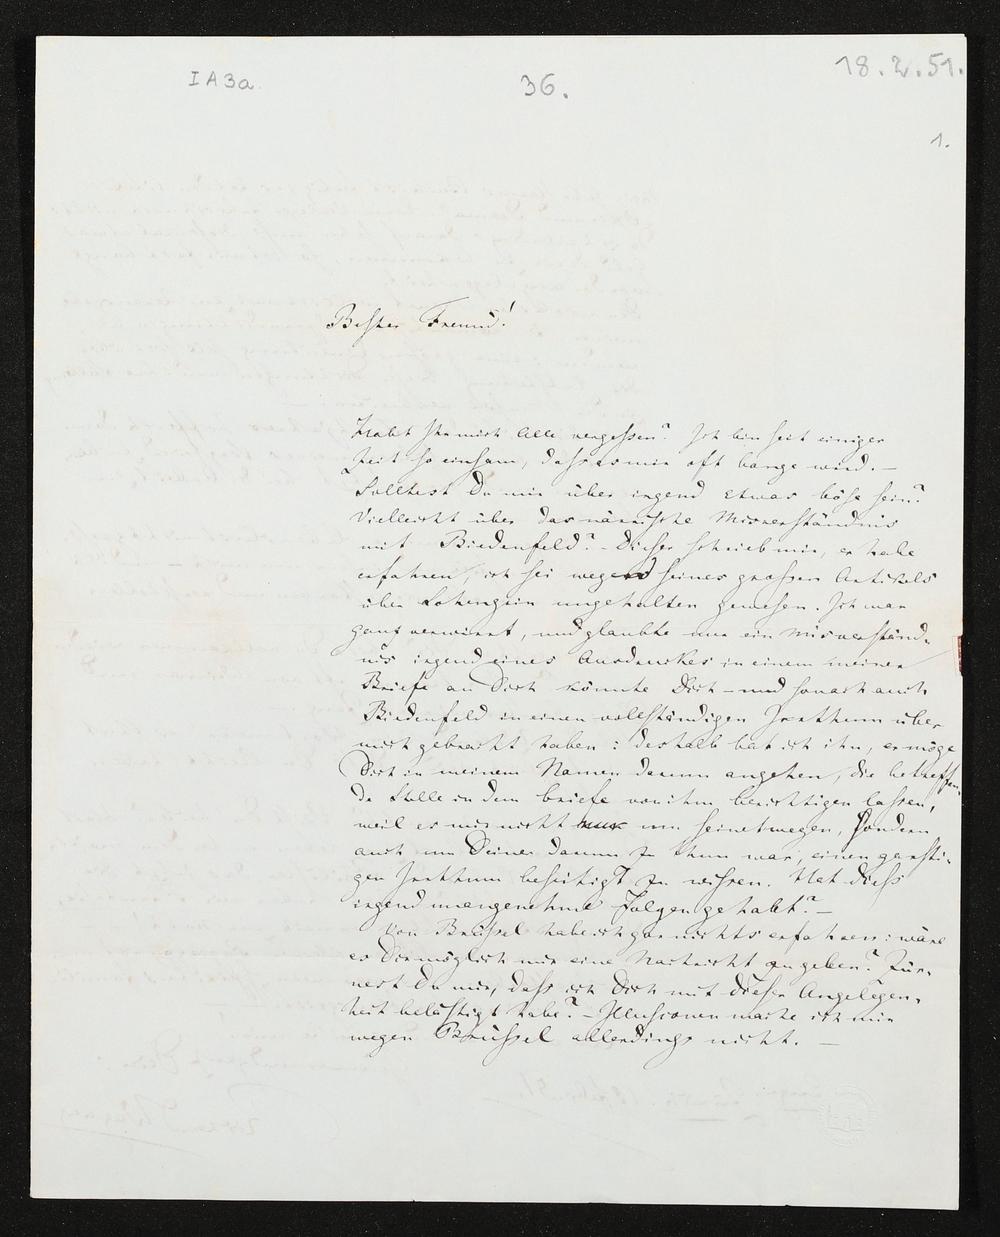 I A 3 a
36.
18.2.51.
1.
Bester Freund!
Habt Ihr mich Alle vergessen? Ich bin seit einiger
Zeit so einsam, dass es mir oft bange wird. –
Solltest Du mir über irgend etwas böse sein?
Vielleicht über das närrische Misverständnis
mit Biedenfeld? – Dieser schrieb mir, er habe
erfahren, ich sei wegen seines grossen Artikels
über Lohengrin ungehalten gewesen. Ich war
ganz verwirrt, und glaubte nur ein Misverständ-
nis irgend eines Ausdruckes in einem meiner
Briefe an Dich könnte Dich – und sonach auch
Biedenfeld in einen vollständigen Irrthum über
mich gebracht haben: deshalb bat ich ihn, er möge
Dich in meinem Namen darum angehen, die betreffen-
de Stelle in dem briefe von ihm berichtigen lassen,
weil es mir nicht nur um seinetwegen, sondern
auch um Deiner darum zu thun war, einen garsti-
gen Irrthum beseitigt zu wissen. Hat diess
irgend unangenehme Folgen gehabt? –
Von Brüssel habe ich gar nichts erfahren: wäre
es Dir möglich mir eine Nachricht zu geben? Zür-
nest Du mir, dass ich Dich mit dieser Angelegen-
heit belästigt habe? – Illusionen mache ich mir
wegen Brüssel allerdings nicht. –